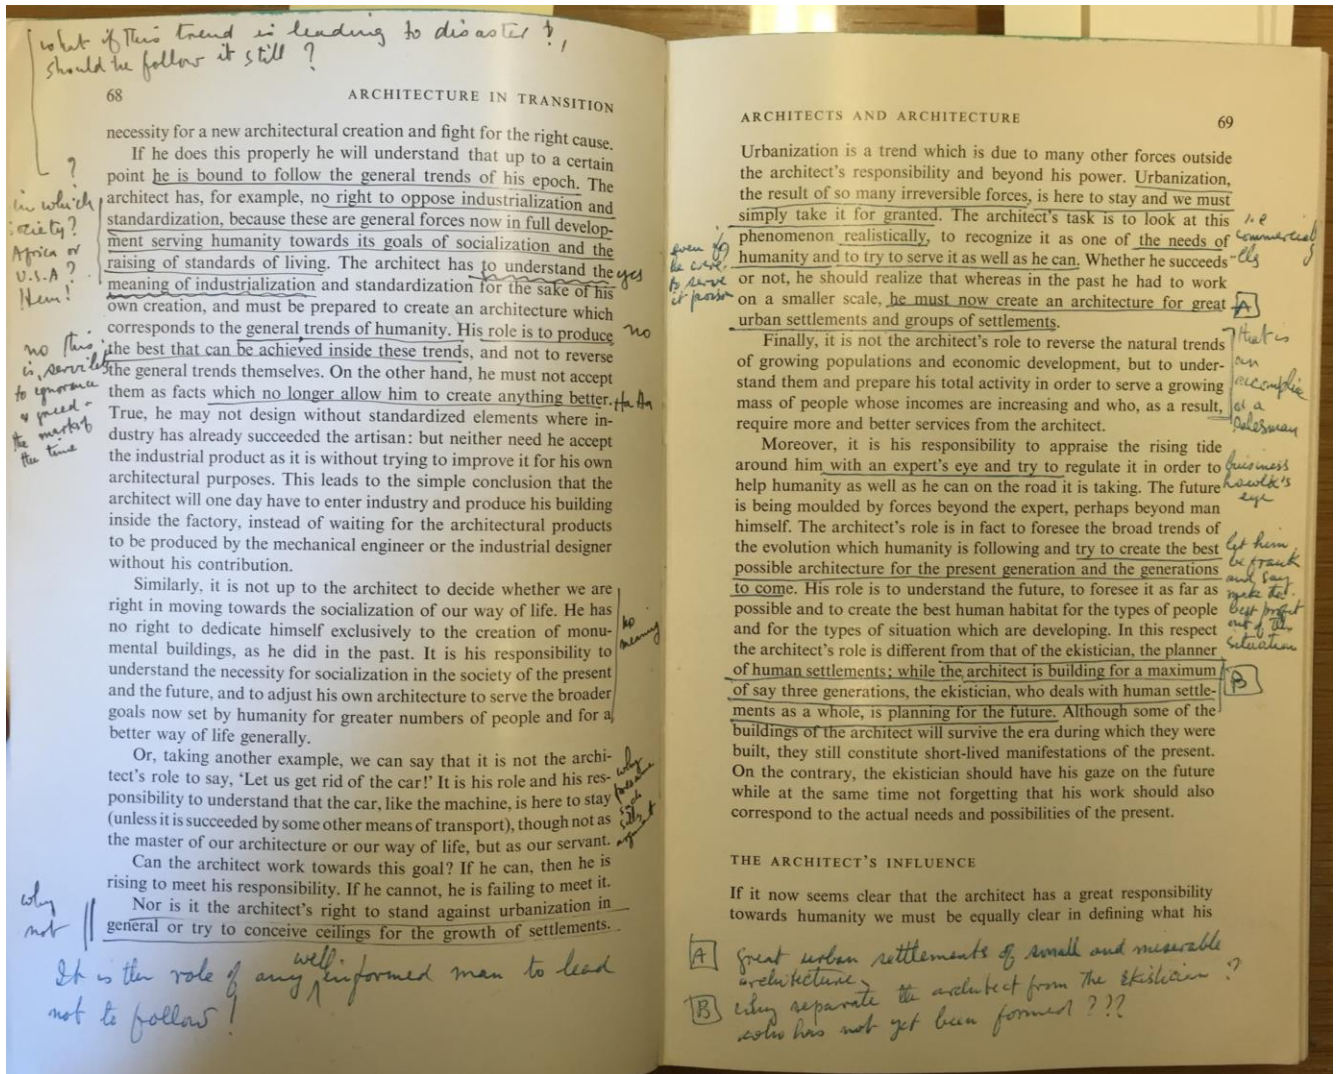 what if this trend is leading to disaster?,
should he follow it still ?
68 ARCHITECTURE IN TRANSITION
necessity for a new architectural creation and fight for the right cause.
If he does this properly he will understand that up to a certain
point he is bound to follow the general trends of his epoch. The
architect has, for example, no right to oppose industrialization and
standardization, because these are general forces now in full develop-
ment serving humanity towards its goals of socialization and the
raising of standards of living. The architect has to understand the
meaning of industrialization and standardization for the sake of his
own creation, and must be prepared to create an architecture which
corresponds to the general trends of humanity. His role is to produce
the best that can be achieved inside these trends, and not to reverse
the general trends themselves. On the other hand, he must not accept
them as facts which no longer allow him to create anything better.
True, he may not design without standardized elements where in-
dustry has already succeeded the artisan: but neither need he accept
the industrial product as it is without trying to improve it for his own
architectural purposes. This leads to the simple conclusion that the
architect will one day have to enter industry and produce his building
inside the factory, instead of waiting for the architectural products
to be produced by the mechanical engineer or the industrial designer
without his contribution.
Similarly, it is not up to the architect to decide whether we are
right in moving towards the socialization of our way of life. He has
no right to dedicate himself exclusively to the creation of monu-
mental buildings, as he did in the past. It is his responsibility to
understand the necessity for socialization in the society of the present
and the future, and to adjust his own architecture to serve the broader
goals now set by humanity for greater numbers of people and for a
better way of life generally.
Or, taking another example, we can say that it is not the archi-
tect's role to say, 'Let us get rid of the car!' It is his role and his res-
ponsibility to understand that the car, like the machine, is here to stay
(unless it is succeeded by some other means of transport), though not as
the master of our architecture or our way of life, but as our servant.
Can the architect work towards this goal? If he can, then he is
rising to meet his responsibility. If he cannot, he is failing to meet it.
Nor is it the architect's right to stand against urbanization in
general or try to conceive ceilings for the growth of settlements.
?
in which
society?
Africa or
U.S.A?
Hem!
no this
is servile
to ignorance
& greed -
the mark of
the time
yes
no
Ha Ha
no
meaning
why
such
silly
argument
why
not
It is the role of any well informed man to lead
not to follow!
ARCHITECTS AND ARCHITECTURE 69
Urbanization is a trend which is due to many other forces outside
the architect's responsibility and beyond his power. Urbanization,
the result of so many irreversible forces, is here to stay and we must
simply take it for granted. The architect's task is to look at this
phenomenon realistically, to recognize it as one of the needs of
humanity and to try to serve it as well as he can. Whether he succeeds
or not, he should realize that whereas in the past he had to work
on a smaller scale, he must now create an architecture for great
urban settlements and groups of settlements.
Finally, it is not the architect's role to reverse the natural trends
of growing populations and economic development, but to under-
stand them and prepare his total activity in order to serve a growing
mass of people whose incomes are increasing and who, as a result,
require more and better services from the architect.
Moreover, it is his responsibility to appraise the rising tide
around him with an expert's eye and try to regulate it in order to
help humanity as well as he can on the road it is taking. The future
is being moulded by forces beyond the expert, perhaps beyond man
himself. The architect's role is in fact to foresee the broad trends of
the evolution which humanity is following and try to create the best
possible architecture for the present generation and the generations
to come. His role is to understand the future, to foresee it as far as
possible and to create the best human habitat for the types of people
and for the types of situation which are developing. In this respect
the architect's role is different from that of the ekistician, the planner
of human settlements; while the architect is building for a maximum
of say three generations, the ekistician, who deals with human settle-
ments as a whole, is planning for the future. Although some of the
buildings of the architect will survive the era during which they were
built, they still constitute short-lived manifestations of the present.
On the contrary, the ekistician should have his gaze on the future
while at the same time not forgetting that his work should also
correspond to the actual needs and possibilities of the present.
THE ARCHITECT'S INFLUENCE
If it now seems clear that the architect has a great responsibility
towards humanity we must be equally clear in defining what his
even if
he were
to serve
it poison
i.e
commercial
lly
A
that is
an
accomplice
as a
salesman
business
hawk's
eye
let him
be frank
and say
make the
best profit
out of the
situation
B
A great urban settlements of small and miserable
architecture
B why separate the architect from the Ekistician ?
who has not yet been formed ???